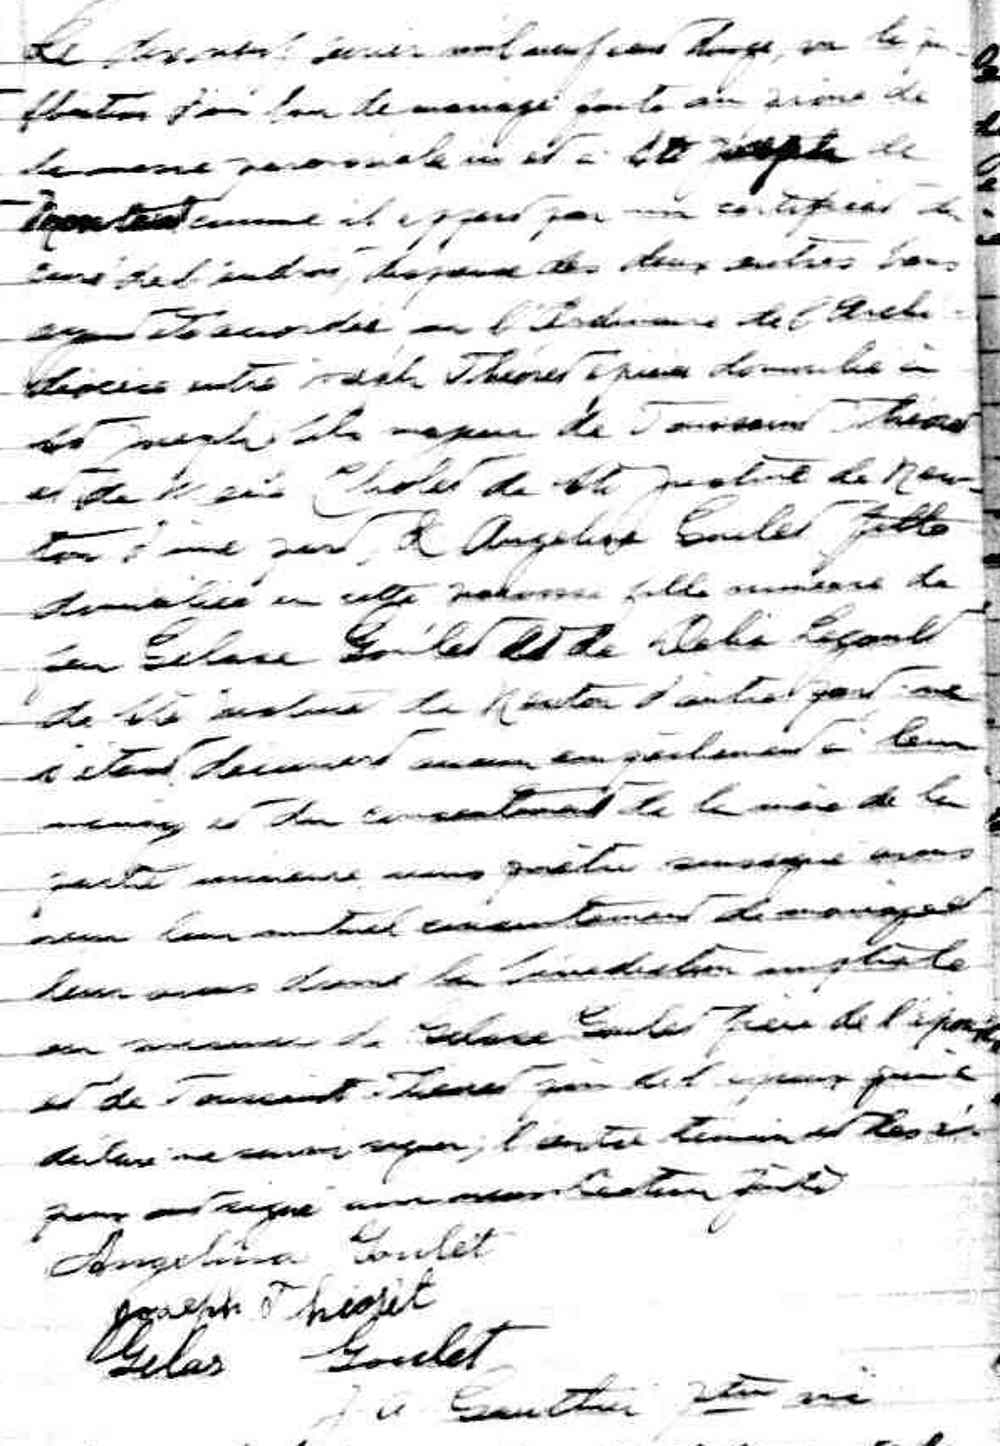 Le dix neuf février mil neuf cent douze, vu la pu-
blication d'un ban de mariage faite au prône de
la messe paroissiale ici et à St Joseph de
comme il appert par un certificat du
curé de l'endroit, dispense des deux autres bans
ayant été accordée par l'Ordinaire de l'Archi-
diocèse entre Joseph Théoret domicilié à
St Joseph fils majeur de Toussaint Théoret
et de Cholet de Ste Justine de New-
ton d'une part, & Angelina Goulet fille
domiciliée en cette paroisse fille mineure de
feu Gelase Goulet et de Delia Legault
de Ste Justine de Newton d'autre part ne
s'étant découvert aucun empêchement à leur
mariage et du consentement de la mère de la
partie mineure nous prêtre soussigné avons
reçu leur mutuel consentement de mariage et
leur avons donné la bénédiction nuptiale
en présence de Gelase Goulet frère de l'épouse
et de Toussaint Théoret père de l'époux qui a
déclaré ne savoir signer, l'autre témoin et les é-
poux ont signé avec nous lecture faite
Angelina Goulet
Joseph Théoret
Gelas Goulet
J A Gauthier ptre